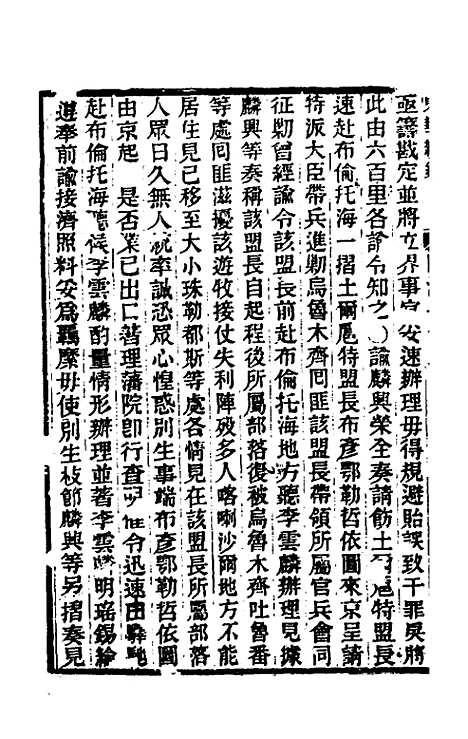 亟籌戡定並將立界事宜妥速辦理毋得規避貽誤致干罪戾將
此由六百里各諭令知之○諭麟興榮全奏請飭土爾扈特盟長
速赴布倫托海一摺土爾扈特盟長布彥鄂勒哲依圖來京呈請
特派大臣帶兵進勦烏魯木齊囘匪該盟長帶領所屬官兵會同
征勦曾經諭令該盟長前赴布倫托海地方聽李雲麟辦理見據
麟興等奏稱該盟長自起程後所屬部落復被烏魯木齊吐魯番
等處囘匪滋擾該遊牧接仗失利陣歿多人喀喇沙爾地方不能
居住見已移至大小珠勒都斯等處各情見在該盟長所屬部落
人眾日久無人統率誠恐眾心惶惑別生事端布彥鄂勒哲依圖
由京起 是否業已出口著理藩院卽行查明催令迅速由驛馳
赴布倫托海聽候李雲麟酌量情形辦理並著李雲麟明瑤錫綸
遵奉前諭接濟照料妥爲羈縻毋使別生枝節麟興等另摺奏見